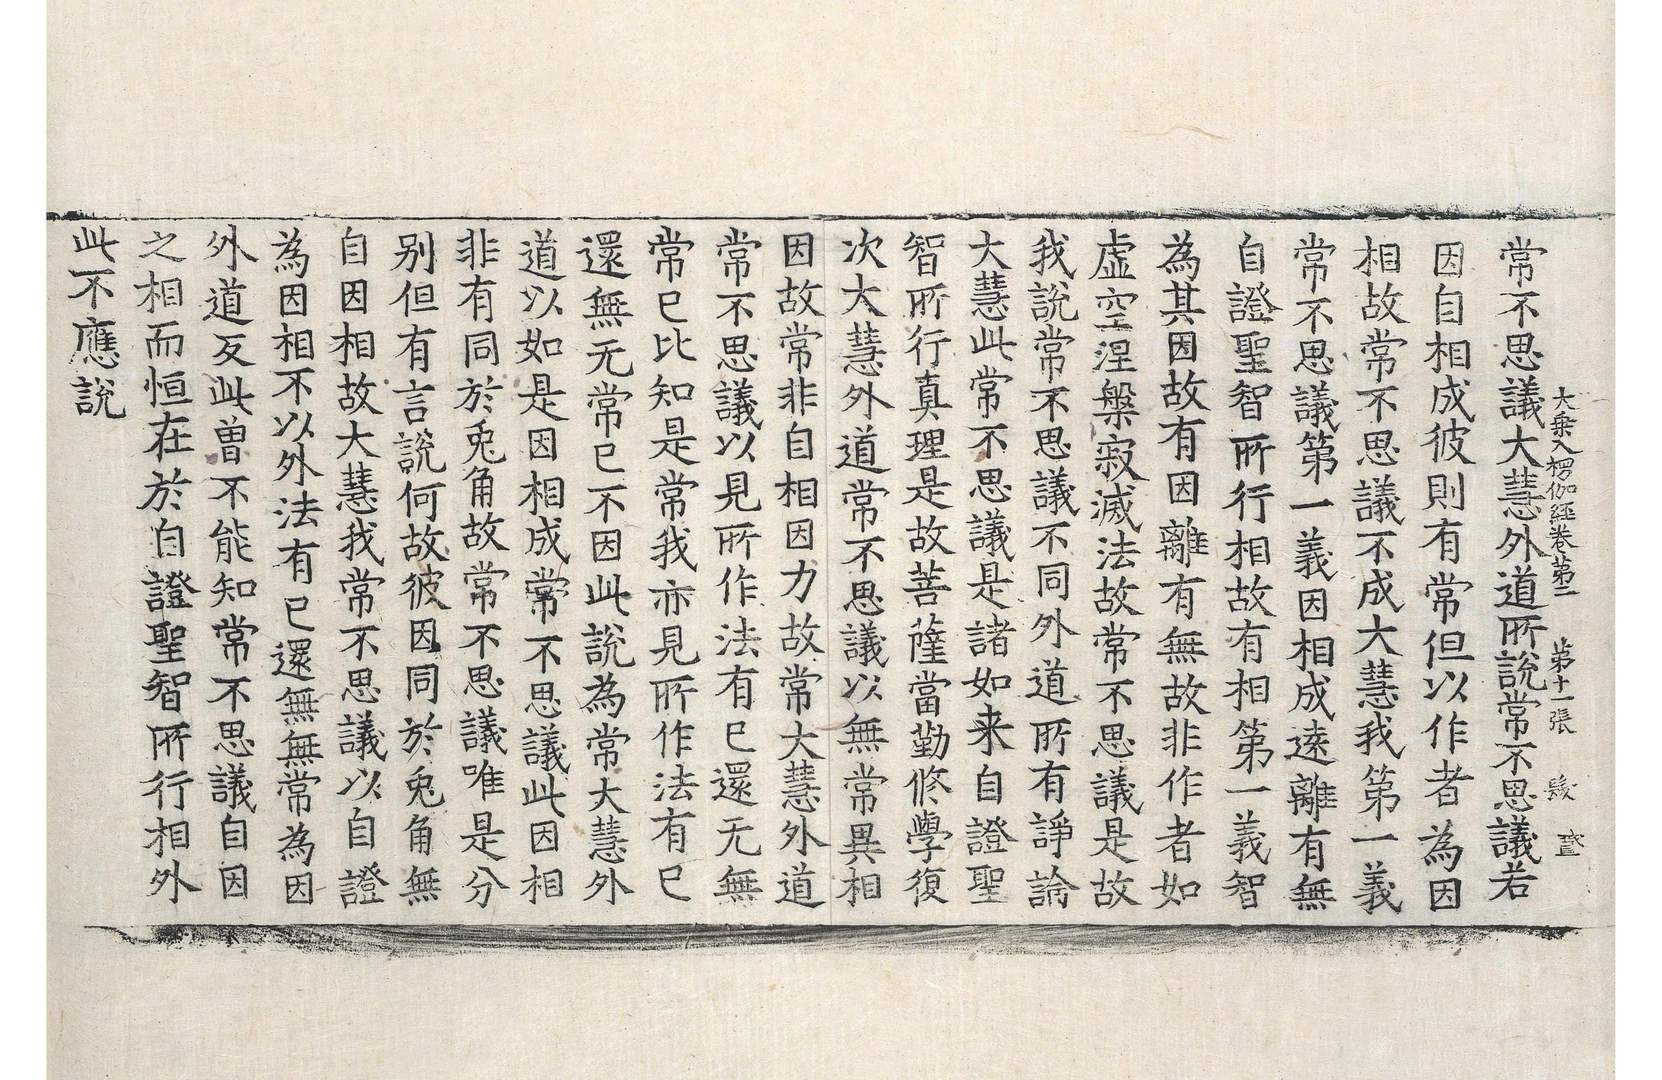 大乗入楞伽經卷第二　第十一張
常不思議大慧外道所說常不思議若
因自相成彼則有常但以作者為因
相故常不思議不成大慧我第一義
常不思議第一義因相成遠離有無
自證聖智所行相故有相第一義智
為其因故有因離有無故非作者如
虛空涅槃寂滅法故常不思議是故
我說常不思議不同外道所有諍論
大慧此常不思議是諸如来自證聖
智所行真理是故菩薩當勤修學復
次大慧外道常不思議以無常異相
因故常非自相因力故常大慧外道
常不思議以見所作法有已還无無
常已比知是常我亦見所作法有已
還無无常已不因此說為常大慧外
道以如是因相成常不思議此因相
非有同於兎角故常不思議唯是分
别但有言說何故彼因同於兎角無
自因相故大慧我常不思議以自證
為因相不以外法有已還無無常為因
外道反此曾不能知常不思議自因
之相而恒在於自證聖智所行相外
此不應說